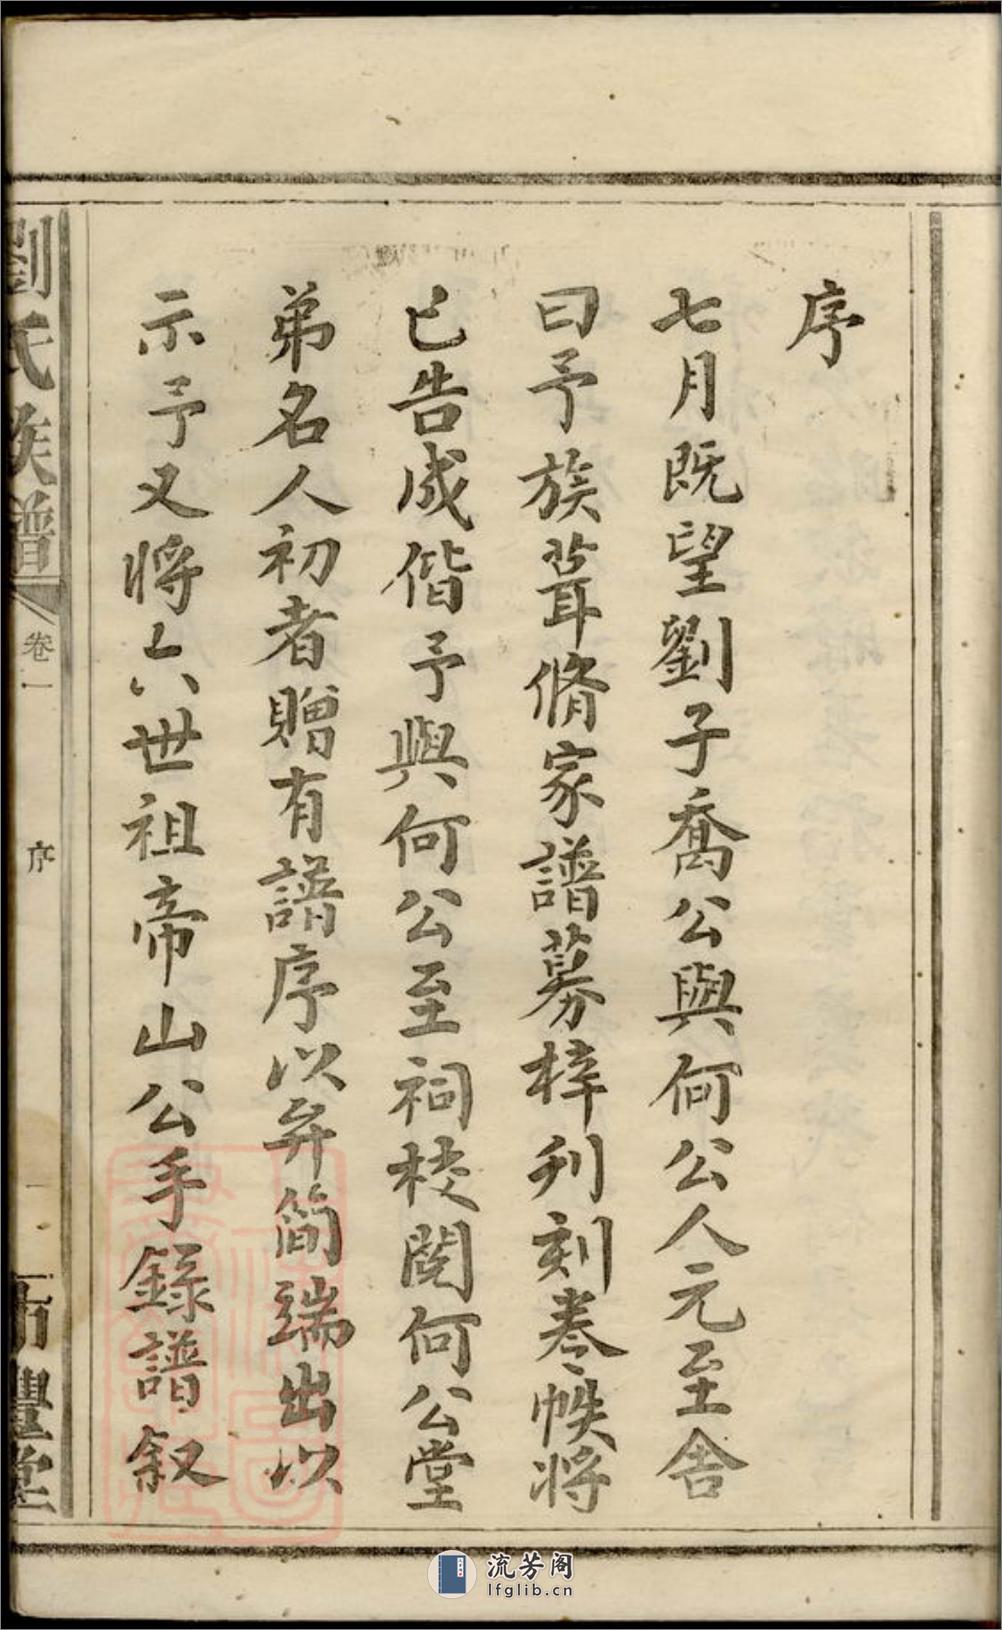 序
七月既望劉子喬公與何公人元至舍
曰予族葺脩家譜募梓刋刻卷帙將
已告成偕予與何公至祠校閱何公堂
弟名人初者贈有譜序以弁簡端出以
示予又將六世祖帝山公手錄譜叙
劉氏族譜
卷一
序
一
豐堂
流芳阁
lfglib.cn